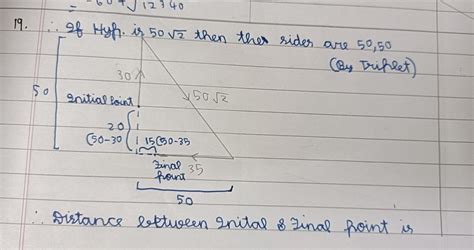 = -60 + √12340
19. ∴ If Hyp. is 50√2 then ther sides are 50,50
(By Triplet)
30
50√2
50
Initial Point
20
(50-30
15(50-35
Final
Point
35
50
∴ Distance between Inital & Final point is